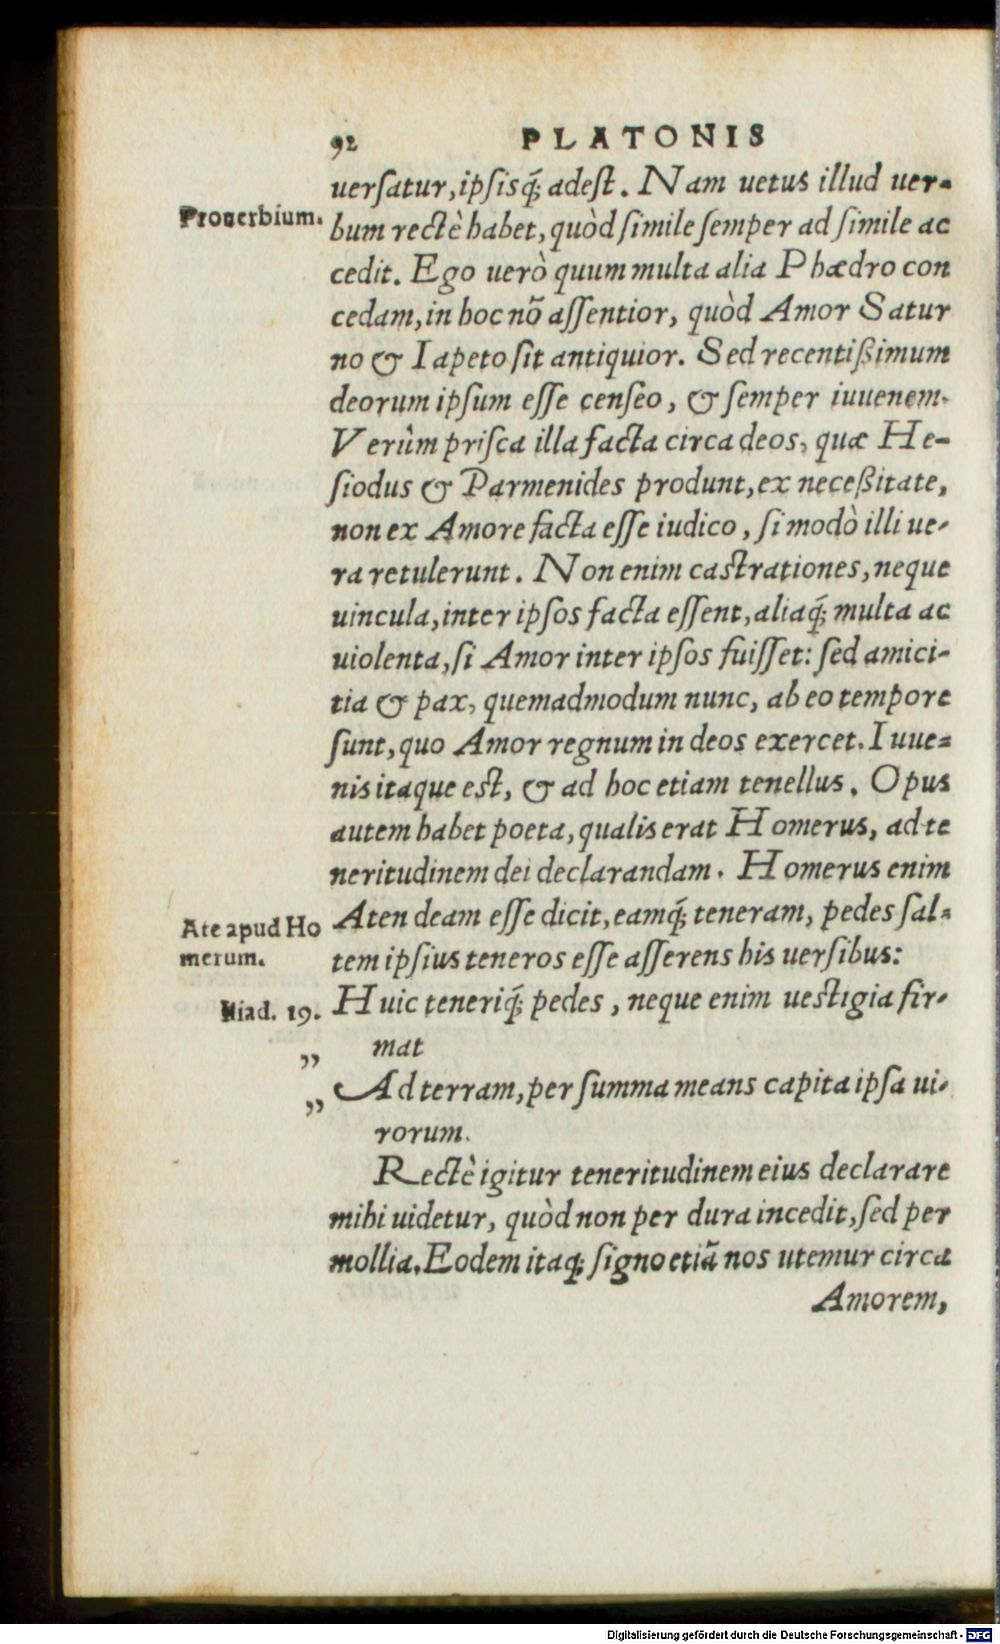 92 PLATONIS
uersatur, ipsisq́; adest. Nam uetus illud uer-
Prouerbium.
bum rectè habet, quòd simile semper ad simile ac
cedit. Ego uerò quum multa alia Phædro con
cedam, in hoc nō assentior, quòd Amor Satur
no & Iapeto sit antiquior. Sed recentißimum
deorum ipsum esse censeo, & semper iuuenem.
Verùm prisca illa facta circa deos, quæ He-
siodus & Parmenides produnt, ex neceßitate,
non ex Amore facta esse iudico, si modò illi ue-
ra retulerunt. Non enim castrationes, neque
uincula, inter ipsos facta essent, aliaq́; multa ac
uiolenta, si Amor inter ipsos fuisset: sed amici-
tia & pax, quemadmodum nunc, ab eo tempore
sunt, quo Amor regnum in deos exercet. Iuue-
nis itaque est, & ad hoc etiam tenellus. Opus
autem habet poeta, qualis erat Homerus, ad te
neritudinem dei declarandam. Homerus enim
Ate apud Ho
merum.
Aten deam esse dicit, eamq́; teneram, pedes sal-
tem ipsius teneros esse asserens his uersibus:
Iliad. 19.
Huic teneriq́; pedes, neque enim uestigia fir-
„ mat
„ Ad terram, per summa means capita ipsa ui-
rorum.
Rectè igitur teneritudinem eius declarare
mihi uidetur, quòd non per dura incedit, sed per
mollia. Eodem itaq; signo etiā nos utemur circa
Amorem,
Digitalisierung gefördert durch die Deutsche Forschungsgemeinschaft - DFG